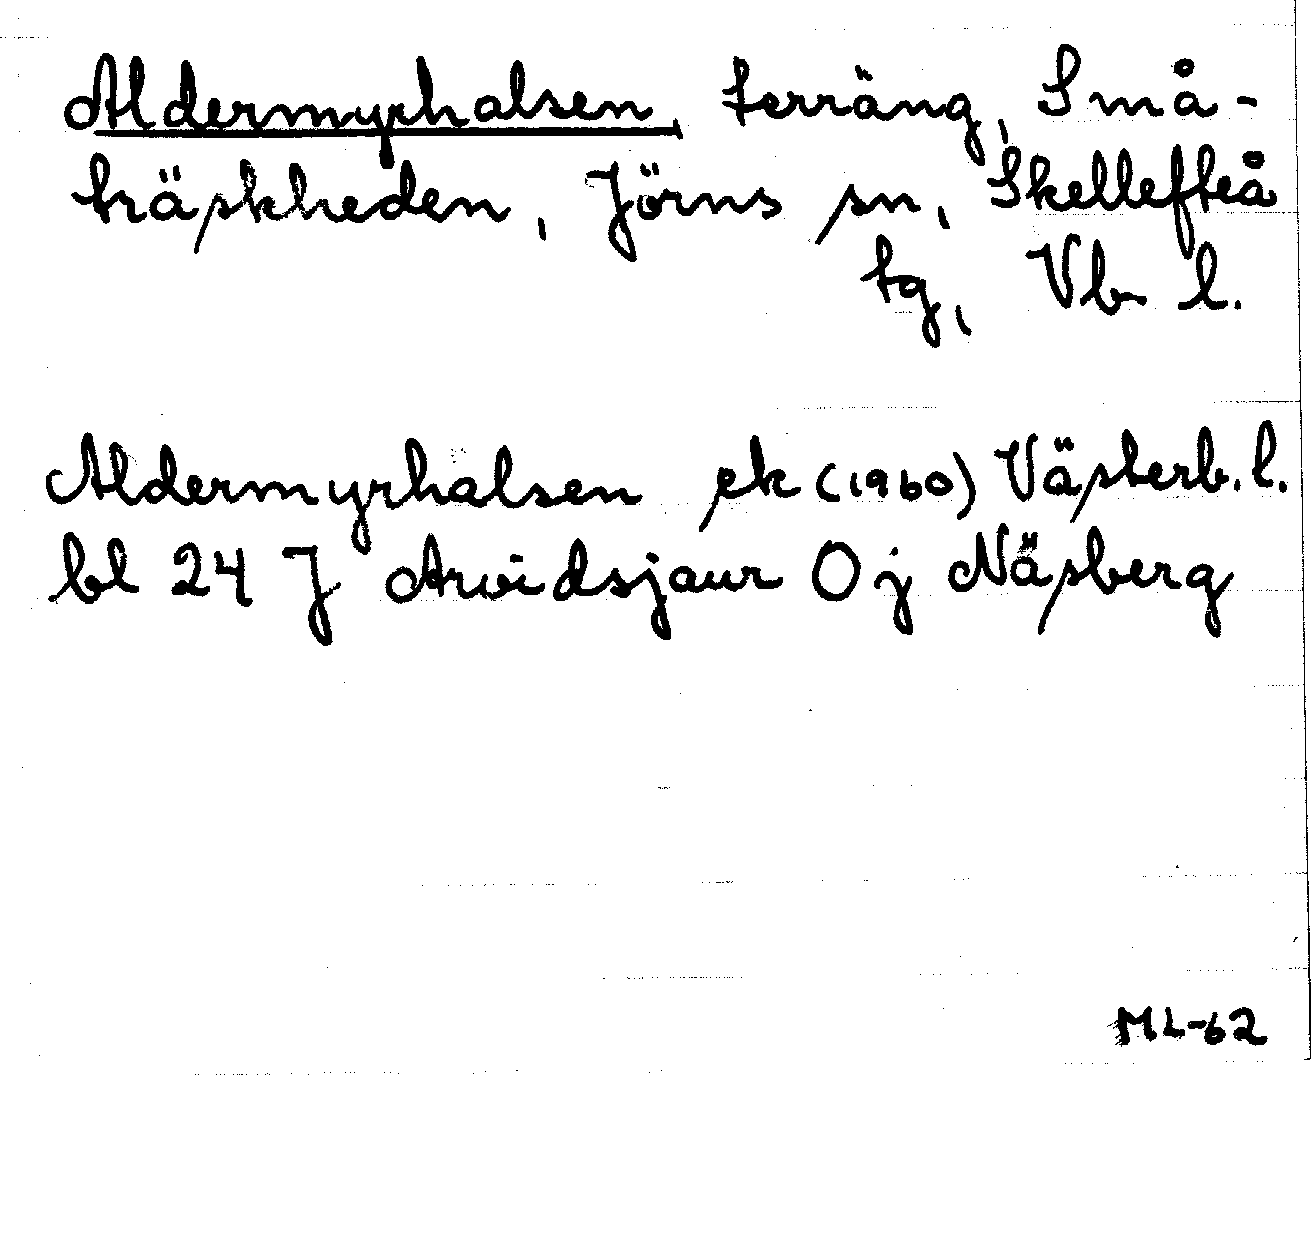 Aldermyrhalsen, terräng, Små-
träskheden, Jörns sn, Skellefteå
tg, Vb l.
Aldermyrhalsen ek (1960) Västerb. l.
bl 24 J Arvidsjaur O j Näsberg
ML-62